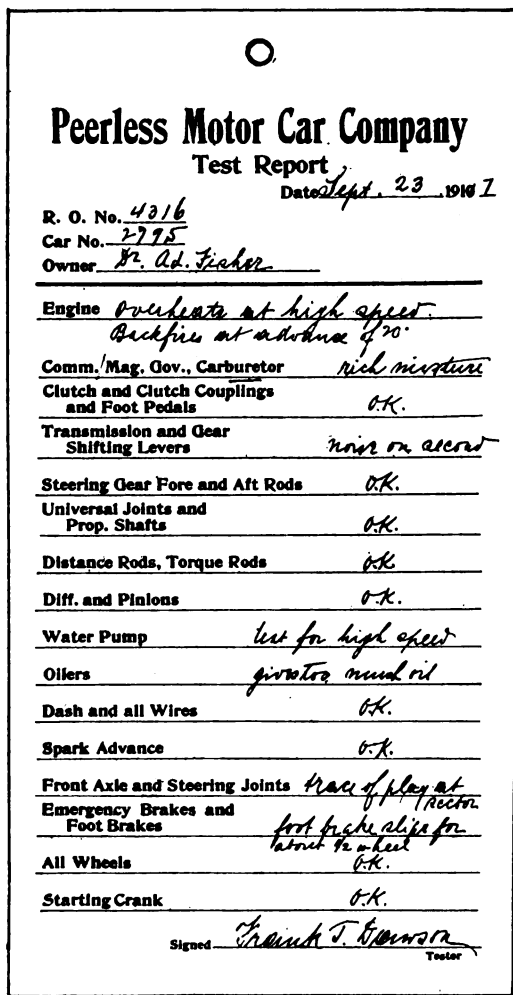 Peerless Motor Car Company
Test Report
Date Sept. 23, 1910 7
R. O. No. 4316
Car No. 2795
Owner Dr. Ad. Fisher
Engine Overheats at high speed.
Backfires at advance of 20°
Comm. Mag. Gov., Carburetor rich mixture
Clutch and Clutch Couplings
and Foot Pedals O.K.
Transmission and Gear
Shifting Levers noisy on second
Steering Gear Fore and Aft Rods O.K.
Universal Joints and
Prop. Shafts O.K.
Distance Rods, Torque Rods O.K.
Diff. and Pinions O.K.
Water Pump test for high speed
Oilers gives too much oil
Dash and all Wires O.K.
Spark Advance O.K.
Front Axle and Steering Joints trace of play at
sector
Emergency Brakes and
Foot Brakes foot brake slips for
about 1/2 wheel
All Wheels O.K.
Starting Crank O.K.
Signed Frank T. Dawson
Tester